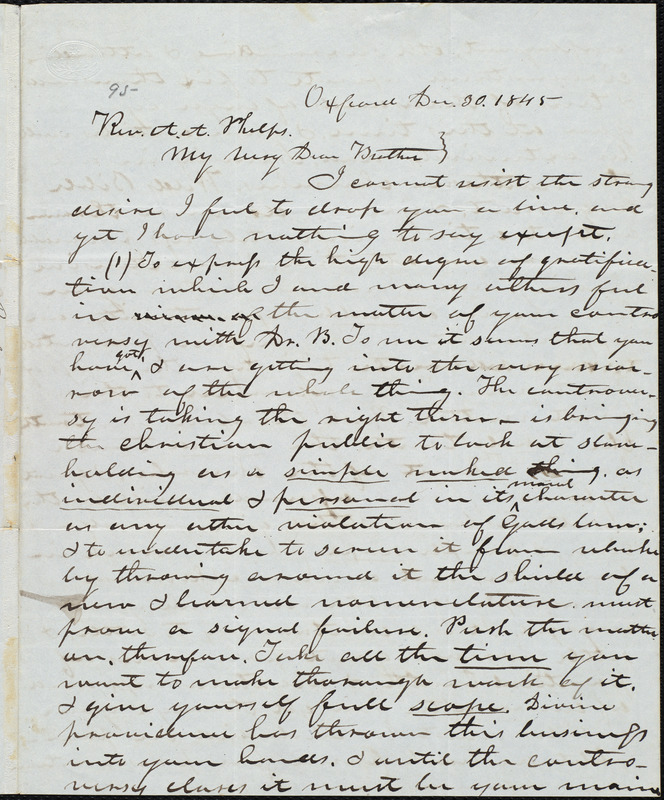 95-
Oxford Dec. 30. 1845-
Rev. A. A. Phelps.
My very Dear Brother }
I cannot resist the strong
desire I feel to drop you a line. and
yet I have nothing to say except.
(1) To express the high degree of gratifica-
tion which I and many others feel
in the matter of your contro
versy with Dr. B. To me it seems that you
have got & are getting into the very mar-
row of the whole thing. The controver-
sy is taking the right turn - is bringing
the christian public to look at slave-
holding as a simple naked thing. as
individual & personal in its moral character
as any other violation of Gods law;
& to undertake to screen it from rebuke
by throwing around it the shield of a
new & learned nomenclature. must
prove a signal failure. Push the matter
on. therefore. Take all the time you
want to make thorough work of it.
& give yourself full scope. Divine
providence has thrown this business
into your hands. & until the contro-
versy closes it must be your main